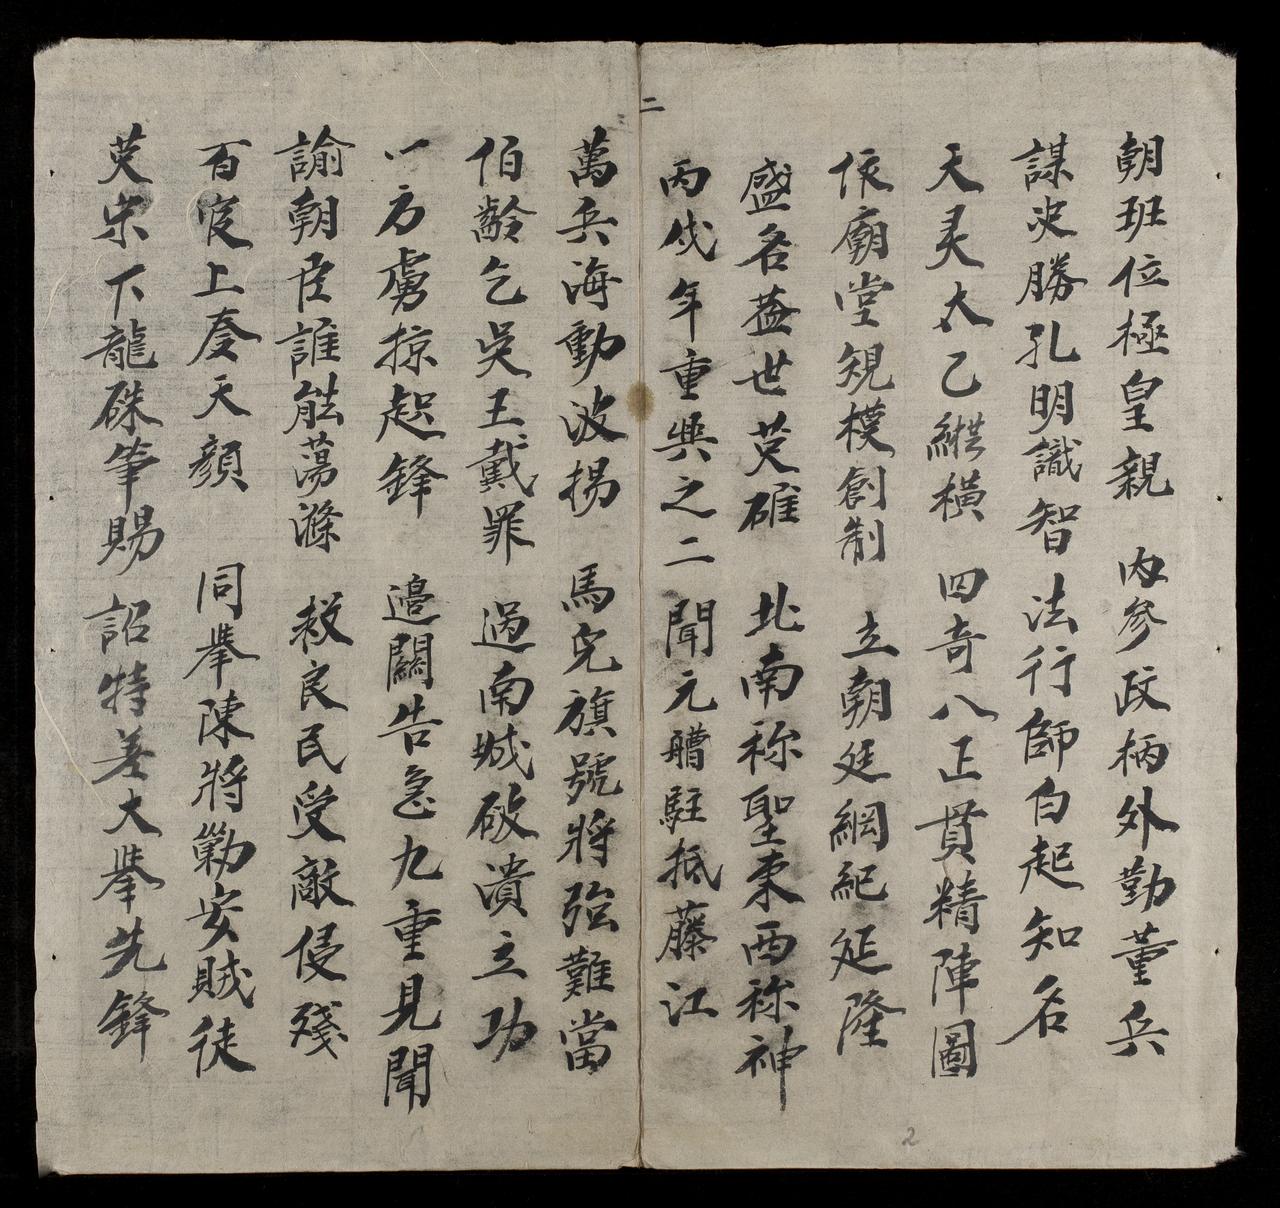 朝班位極皇親 內參政柄外勤董兵
謀决勝孔明識智 法行師白起知名
天灵太乙縱橫 四奇八正貫精陣圖
依廟堂規模創制 立朝廷綱紀延隆
盛名蓋世英雄 北南称聖東西称神
丙戌年重興之二 聞元艚駐抵藤江
二
萬兵海動波揚 馬兒旗號將強難當
伯齡乞吳王戴罪 過南城破潰立功
一方虜掠起鋒 邉關告急九重見聞
諭朝臣誰能蕩滌 救良民受敵侵殘
百官上奏天顏 同舉陳將勦安賊徒
英宗下龍硃筆賜 詔特差大舉先鋒
2